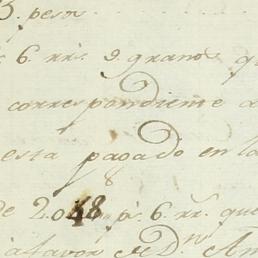 3. pesos
s 6. rr.s 9. granos qu
correspondiente a
esta pagado en la
8
de 2.048 p.s 6. rr.s que
a favor de D.n Am